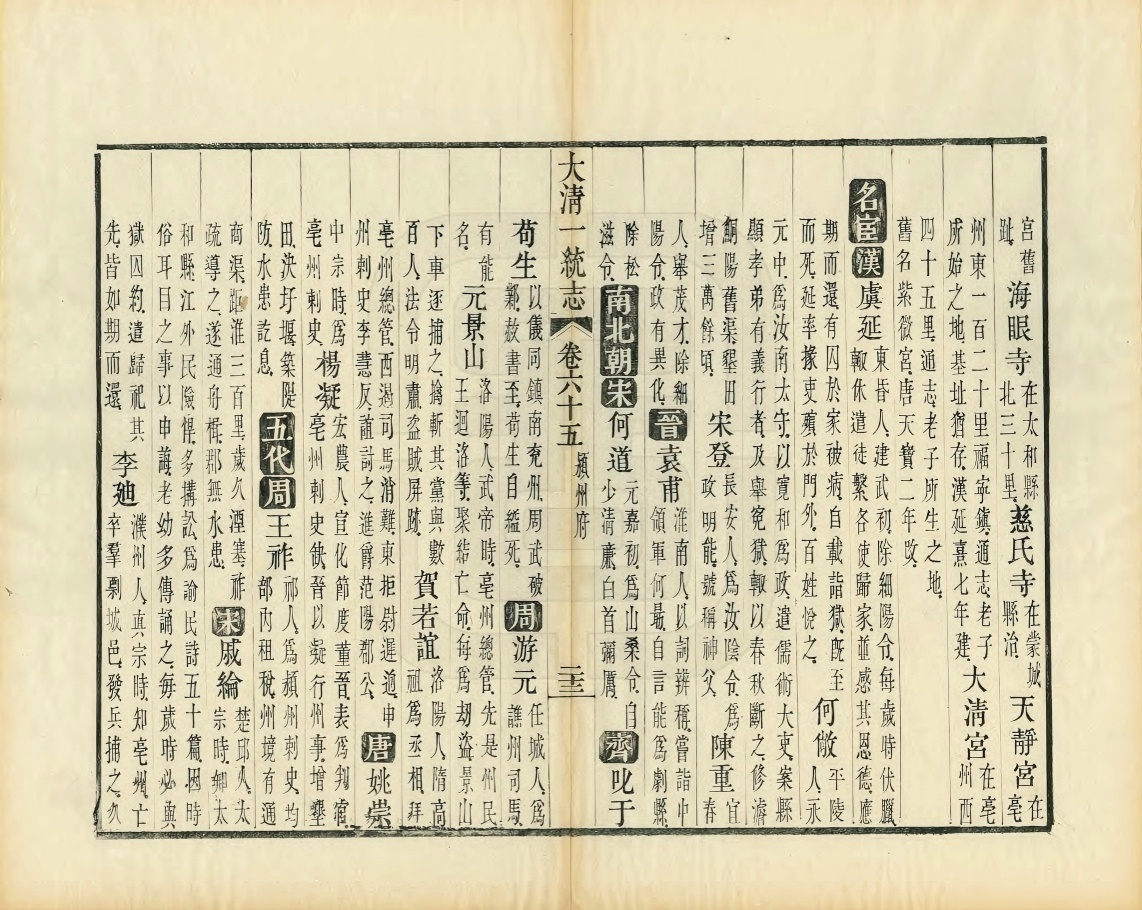 宮舊
趾
海眼寺
在太和縣
北三十里
慈氏寺
在蒙城
縣治
天靜宮
在
亳
州東一百二十里福寧鎮通志老子
所始之地基址猶存漢延熹七年建
大清宮
在亳
州西
四十五里通志老子所生之地
舊名紫微宮唐天寶二年改
名宦 漢 虞延
東昏人建武初除細陽令每歲時伏臘
輙休遣徒繫各使歸家並感其恩德應
期而還有囚於家被病自載詣獄旣至
而死延率掾吏殯於門外百姓悅之
何敞
平陵
人永
元中爲汝南太守以寬和爲政遣儒術大吏案縣
顯孝弟有義行者及舉冤獄輙以春秋斷之修濬
鮦陽舊渠墾田
增三萬餘頃
宋登
長安人爲汝陰令爲
政明能號稱神父
陳重
宜
春
人舉茂才除細
陽令政有異化
晉 袁甫
淮南人以詞辨稱嘗詣中
領軍何最自言能爲劇縣
除松
滋令
南北朝宋 何道
元嘉初爲山桑令自
少清廉白首彌厲
齊 叱于
大清一統志 卷六十五 潁州府 二十三
苟生
以儀同鎮南兗州周武破
鄴赦書至苟生自縊死
周 游元
任城人爲
譙州司馬
有能
名
元景山
洛陽人武帝時亳州總管先是州民
王迴洛等聚結亡命每爲劫盜景山
下車逐捕之擒斬其黨與數
百人法令明肅盜賊屏跡
賀若誼
洛陽人隋高
祖爲丞相拜
亳州總管西遏司馬消難東拒尉遲逈申
州刺史李慧反誼討之進爵范陽郡公
唐 姚崇
中宗時爲
亳州刺史
楊凝
宏農人宣化節度董晉表爲判官
亳州刺史缺晉以凝行州事增墾
田決圩堰築隄
防水患訖息
五代周 王祚
祁人爲潁州刺史均
部內租稅州境有通
商渠距淮三百里歲久湮塞祚
疏導之遂通舟檝郡無水患
宋 戚綸
楚邱人太
宗時知太
和縣江外民險悍多搆訟爲諭民詩五十篇因時
俗耳目之事以申誨老幼多傳誦之每歲時必與
獄囚約遣歸祀其
先皆如期而還
李廸
濮州人眞宗時知亳州亡
卒羣剽城邑發兵捕之久